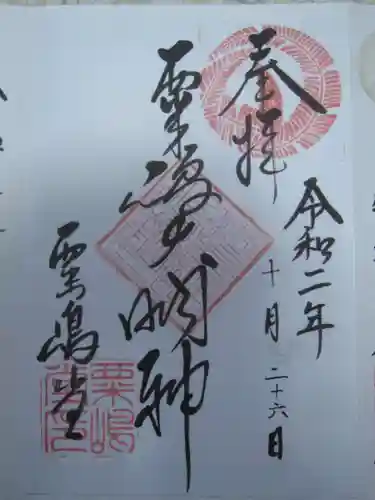 奉拝
令和二年
十月二十六日
粟嶋大明神
粟嶋堂